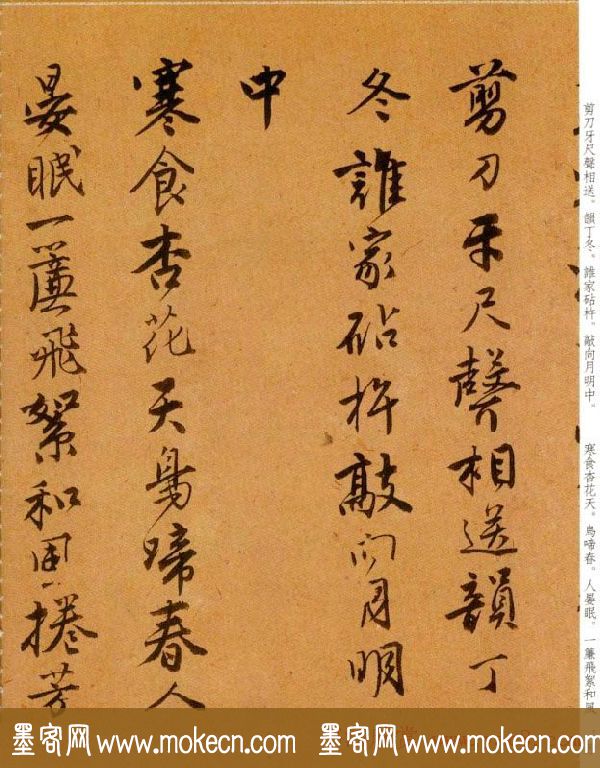 剪刀牙尺聲相送韻丁
冬誰家砧杵敲向月明
中
寒食杏花天鳥啼春人
晏眠一簾飛絮和風捲芳
剪刀牙尺聲相送。韻丁冬。誰家砧杵。敲向月明中。　寒食杏花天。鳥啼春。人晏眠。一簾飛絮和風
墨客网 www.mokecn.com 墨客网 www.mokecn.com